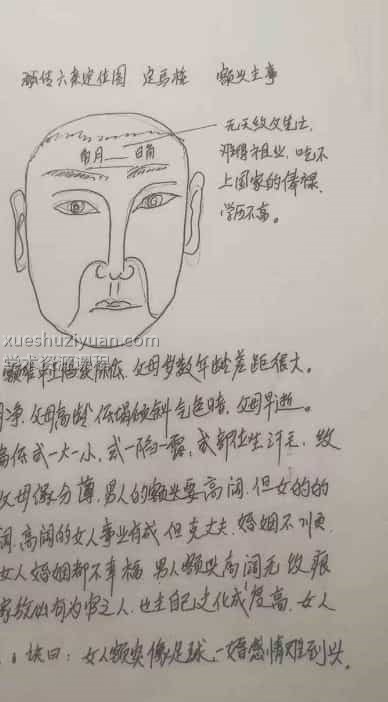 六亲定位图 定马桩 额头主事
无天纹父生土,
难得守祖业,吃不
上国家的俸禄,
学历不高。
月 日角
xueshuziyuan.com
父母岁数年龄差距很大。
净,父母高龄 低塌倾斜气色暗,父母早逝。
高低 或一大一小,或一陷一露,或部位生汗毛,纹
父母缘分薄,男人的额头要高阔,但女的的
阔,高阔的女人事业有成,但克丈夫,婚姻不顺
女人婚姻都不幸福 男人额头高阔无纹痕
有为官之人,也主自己文化成度高,女人
诀曰:女人额头像足球,一婚感情难到头。